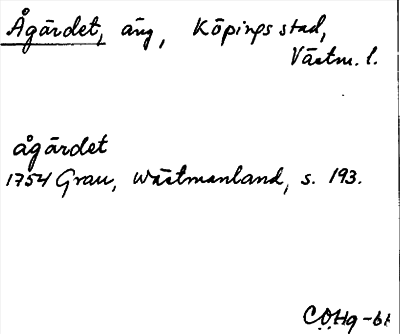 Ågärdet, äng, Köpings stad,
Västm. l.
ågärdet
1754 Grau, Wästmanland, s. 193.